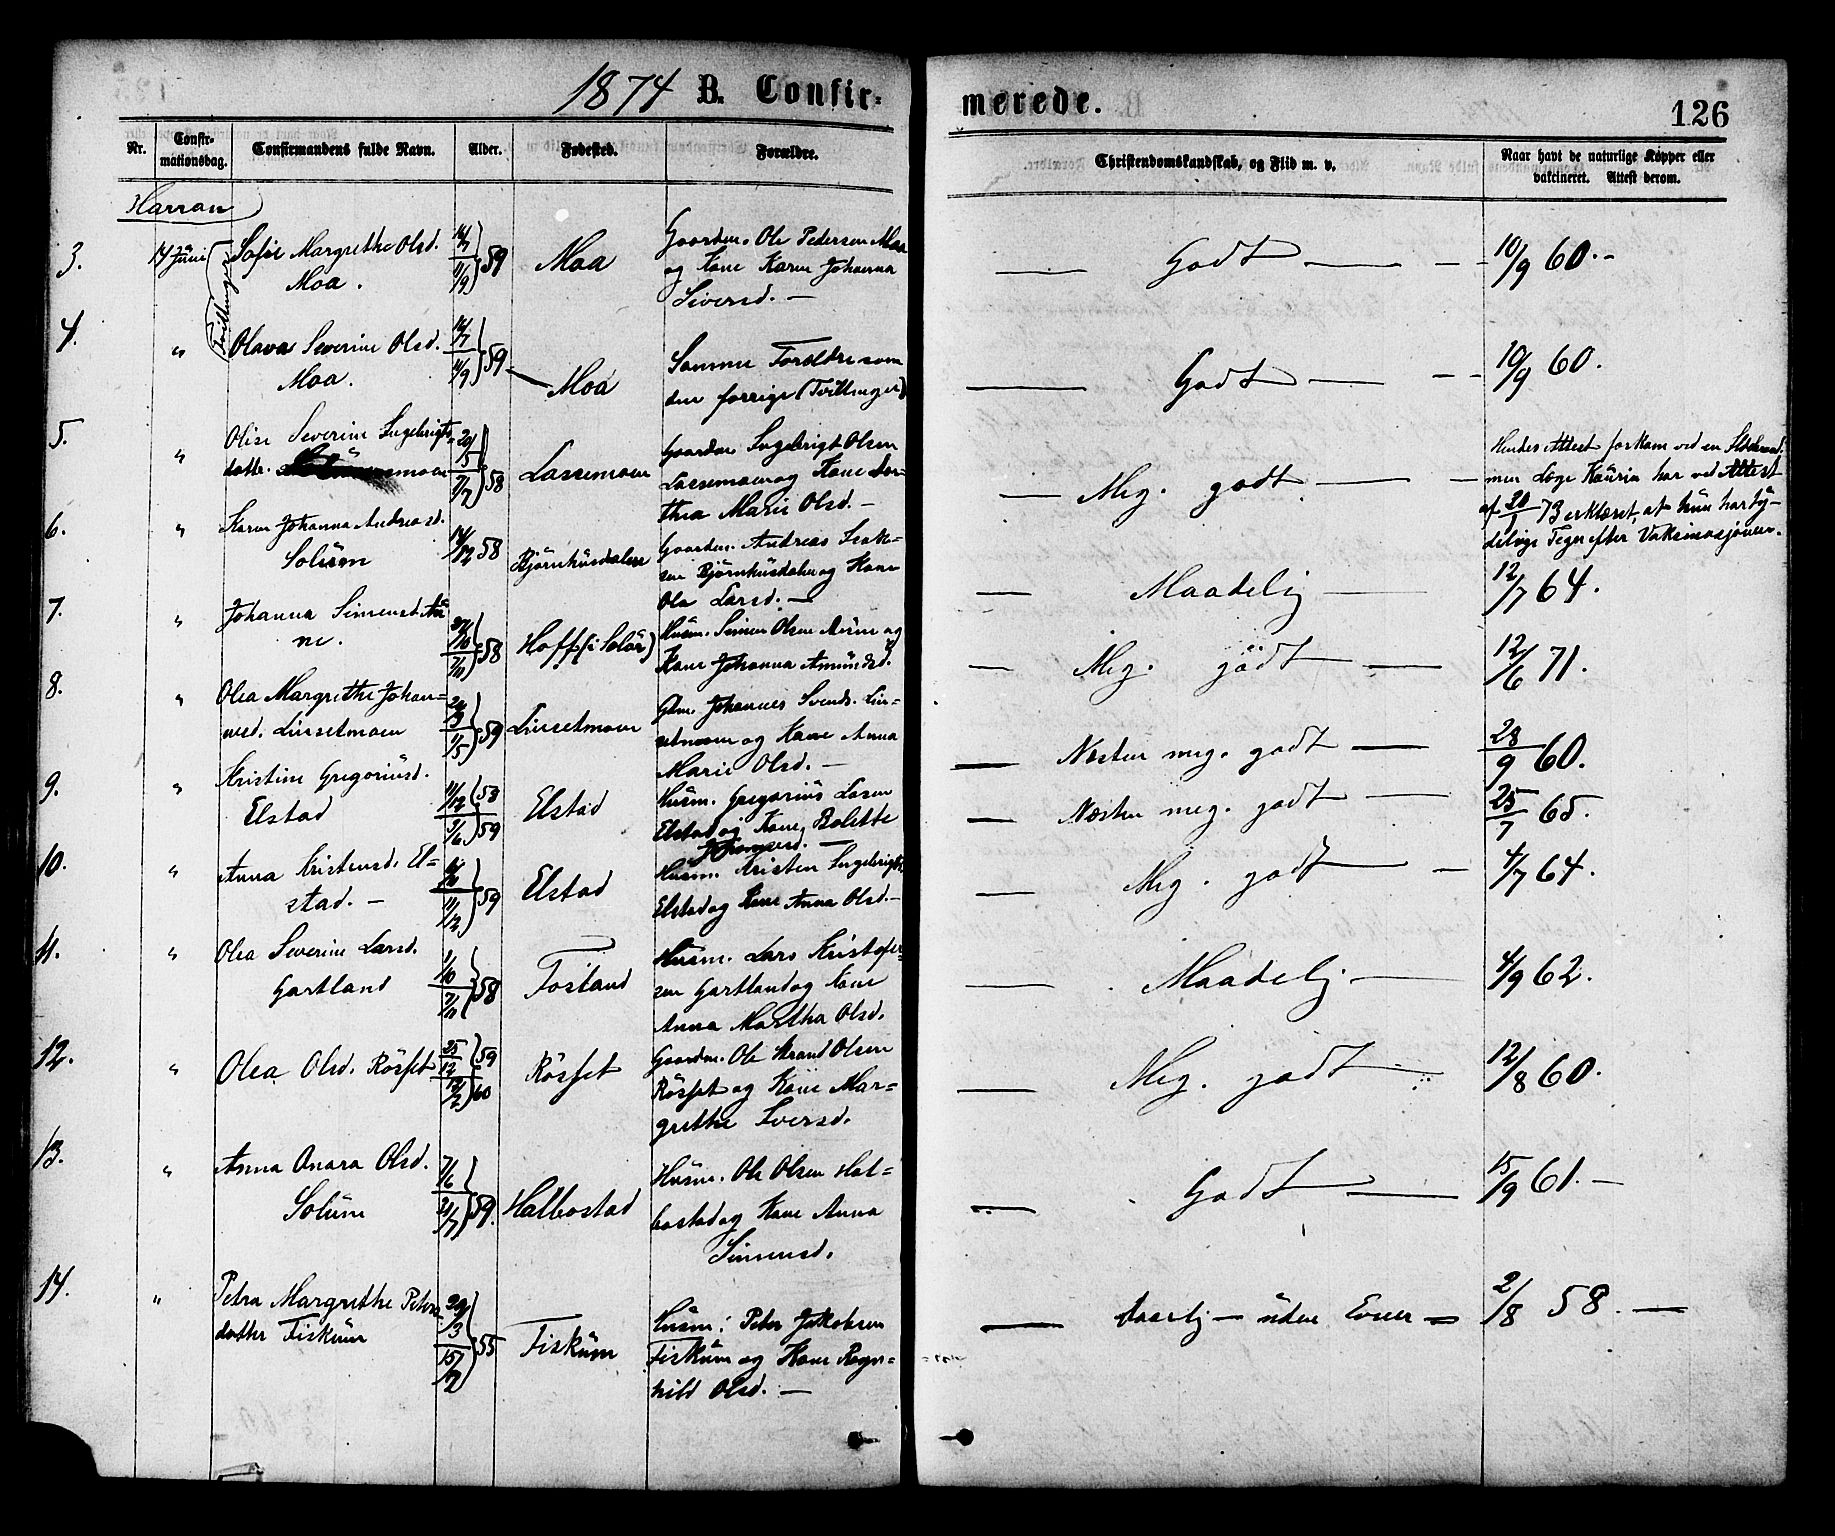 1874 B. Confirmerede.
126
Nr.
Confirmationsdag.
Confirmandens fulde Navn.
Alder.
Fødested.
Forældre.
Christendomskundskab, og Flid m. v.
Naar havt de naturlige Kopper eller
vaktineret. Attest derom.
Harran
3.
14 Juni
Tvillinger
Sofie Margrethe Olsd.
Moa.
14/7
11/9 59
Moa
Gaardm. Ole Pedersen Moa
og Kone Karen Johanna
Siversd. —
— Godt — — —
10/9 60. —
4.
"
Olava Severine Olsd.
Moa.
14/7
11/9 59
Moa
Samme Forældre som
den forrige (Tvillinger)
— Godt — — —
10/9 60.
5.
"
Olise Severine Ingebrigts-
datter moen
20/5
7/7 58
Lassemoen
Gaardm. Ingebrigt Olsen
Lassemoen og Kone Dor-
thea Marie Olsd. —
— Meg. godt. — —
Hendes Attest forkom ved en
men Læge Kaurin har ved Attest
af 20/1 73 erklæret, at hun har ty-
delige Tegn efter Vaksinasjonen.
6.
"
Karen Johanna Andreasd.
Solum
14/12 58
Bjørnhusdalen
Gaardm. Andreas Isak-
sen Bjørnhusdalen og Kone
Ola Larsd. —
— Maadelig —
12/7 64.
7.
"
Johanna Simensd. Au
ne.
7/11 58
Hoff (i Solør)
Husm. Simen Olsen Aune og
Kone Johanna Amundsd.
— Meg. godt —
12/6 71.
8.
"
Olea Margrethe Johan-
nesd. Lursetmoen
24/3
1/5 59
Lursetmoen
Gdm. Johannes Svends. Lur-
setmoen og Kone Anna
Marie Olsd. —
— Næsten meg. godt —
28/9 60.
9.
"
Kristine Gregoriusd.
Elstad
11/12 58
9/6 59
Elstad
Husm. Gregorius Larsen
Elstad og Kone Bolette
— Næsten meg. godt —
25/7 65.
10.
"
Anna Kristensd. El-
stad. —
11/12 59
Elstad
Husm. Kristen Ingebrigts.
Elstad og Kone Anna Olsd. —
— Meg. godt — —
4/7 64.
11.
"
Olea Severine Larsd.
Gartland
1/10
7/11 58
Fosland
Husm. Lars Kristofer-
sen Gartland og Kone
Anna Martha Olsd.
— Maadelig —
4/9 62.
12.
"
Olea Olsd. Røsset
25/12 59
12/2 60
Røsset
Gaardm. Ole Strand Olsen
Røsset og Kone Mar-
grethe Iversd.
— Meg. godt —
12/8 60.
13.
"
Anna Anara Olsd.
Solum
7/6
31/7 59.
Halbostad
Husm. Ole Olsen Hal-
bostad og Kone Anna
Simensd.
— Godt —
15/9 61. —
14.
"
Petra Margrethe Peters
datter Fiskum
29/3
15/7 55
Fiskum
Husm. Peter Jakobsen
Fiskum og Kone Ragn-
hild Olsd. —
— daarlig — uden Evner —
2/8 58. —